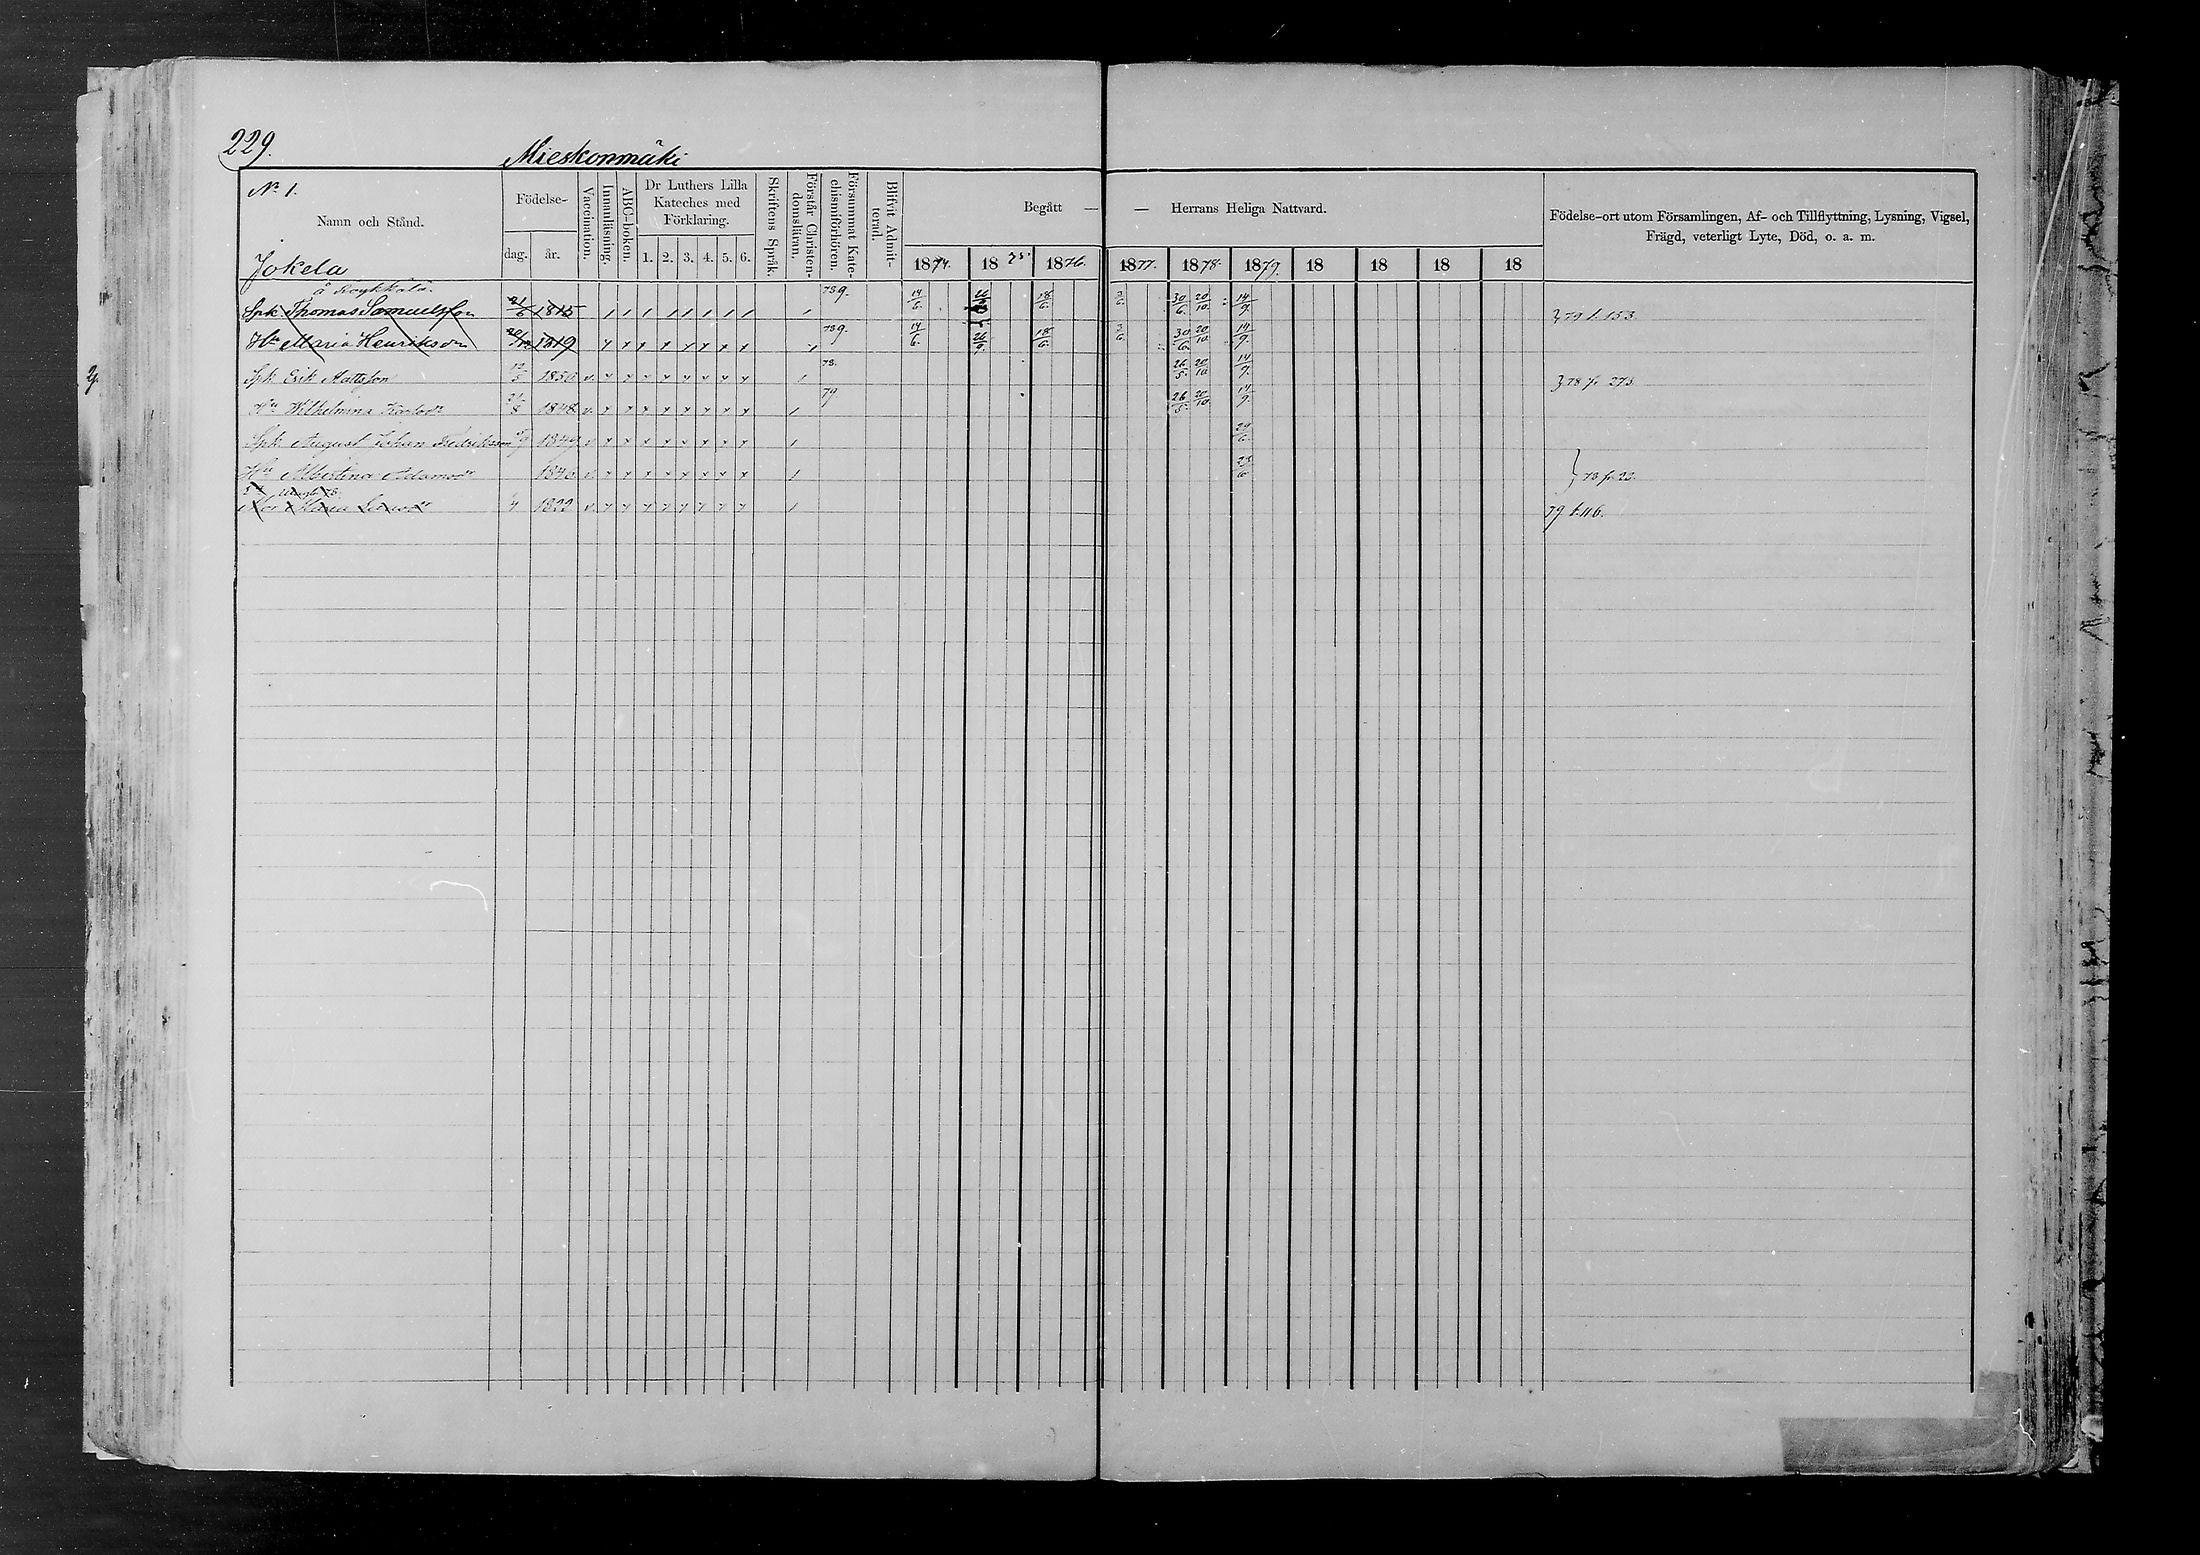 229.
Mieskonmäki
No 1.
Namn och Stånd.
Födelse-
dag. år.
Vaccination.
Innanläsning.
ABC-boken.
Dr Luthers Lilla Kateches med Förklaring.
1. 2. 3. 4. 5. 6.
Skriftens Språk.
Förstår Christen-domsläran.
Försummat Kate-chismiförhören.
Blifvit Admit-terad.
Begått — — Herrans Heliga Nattvard.
1874. 1875. 1876. 1877. 1878. 1879. 18 18 18 18
Födelse-ort utom Församlingen, Af- och Tillflyttning, Lysning, Vigsel,
Frägd, veterligt Lyte, Död, o. a. m.
Jokela
Spk Thomas Samuelsson 21/6 1815 739. 14/6 18/6 3/6 30/6 20/10 14/9 79 t. 153.
Hu Maria Henriksdr 1819 739. 14/6 26/9 18/6 3/6 30/6 20/10 14/9
Spk Erik Mattsson 12/5 1850 v. 78. 26/5 20/10 14/9 78 fr 273.
Hu Wilhelmina Karlsdr 21/8 1848 v. 79 26/5 20/10 14/9
Spk August Johan Fredriksson 1849 v. 29/6
Hu Albertina Adamsdr 1846 v. 73 fr 22.
Maria 1822 v. 79 t. 116.